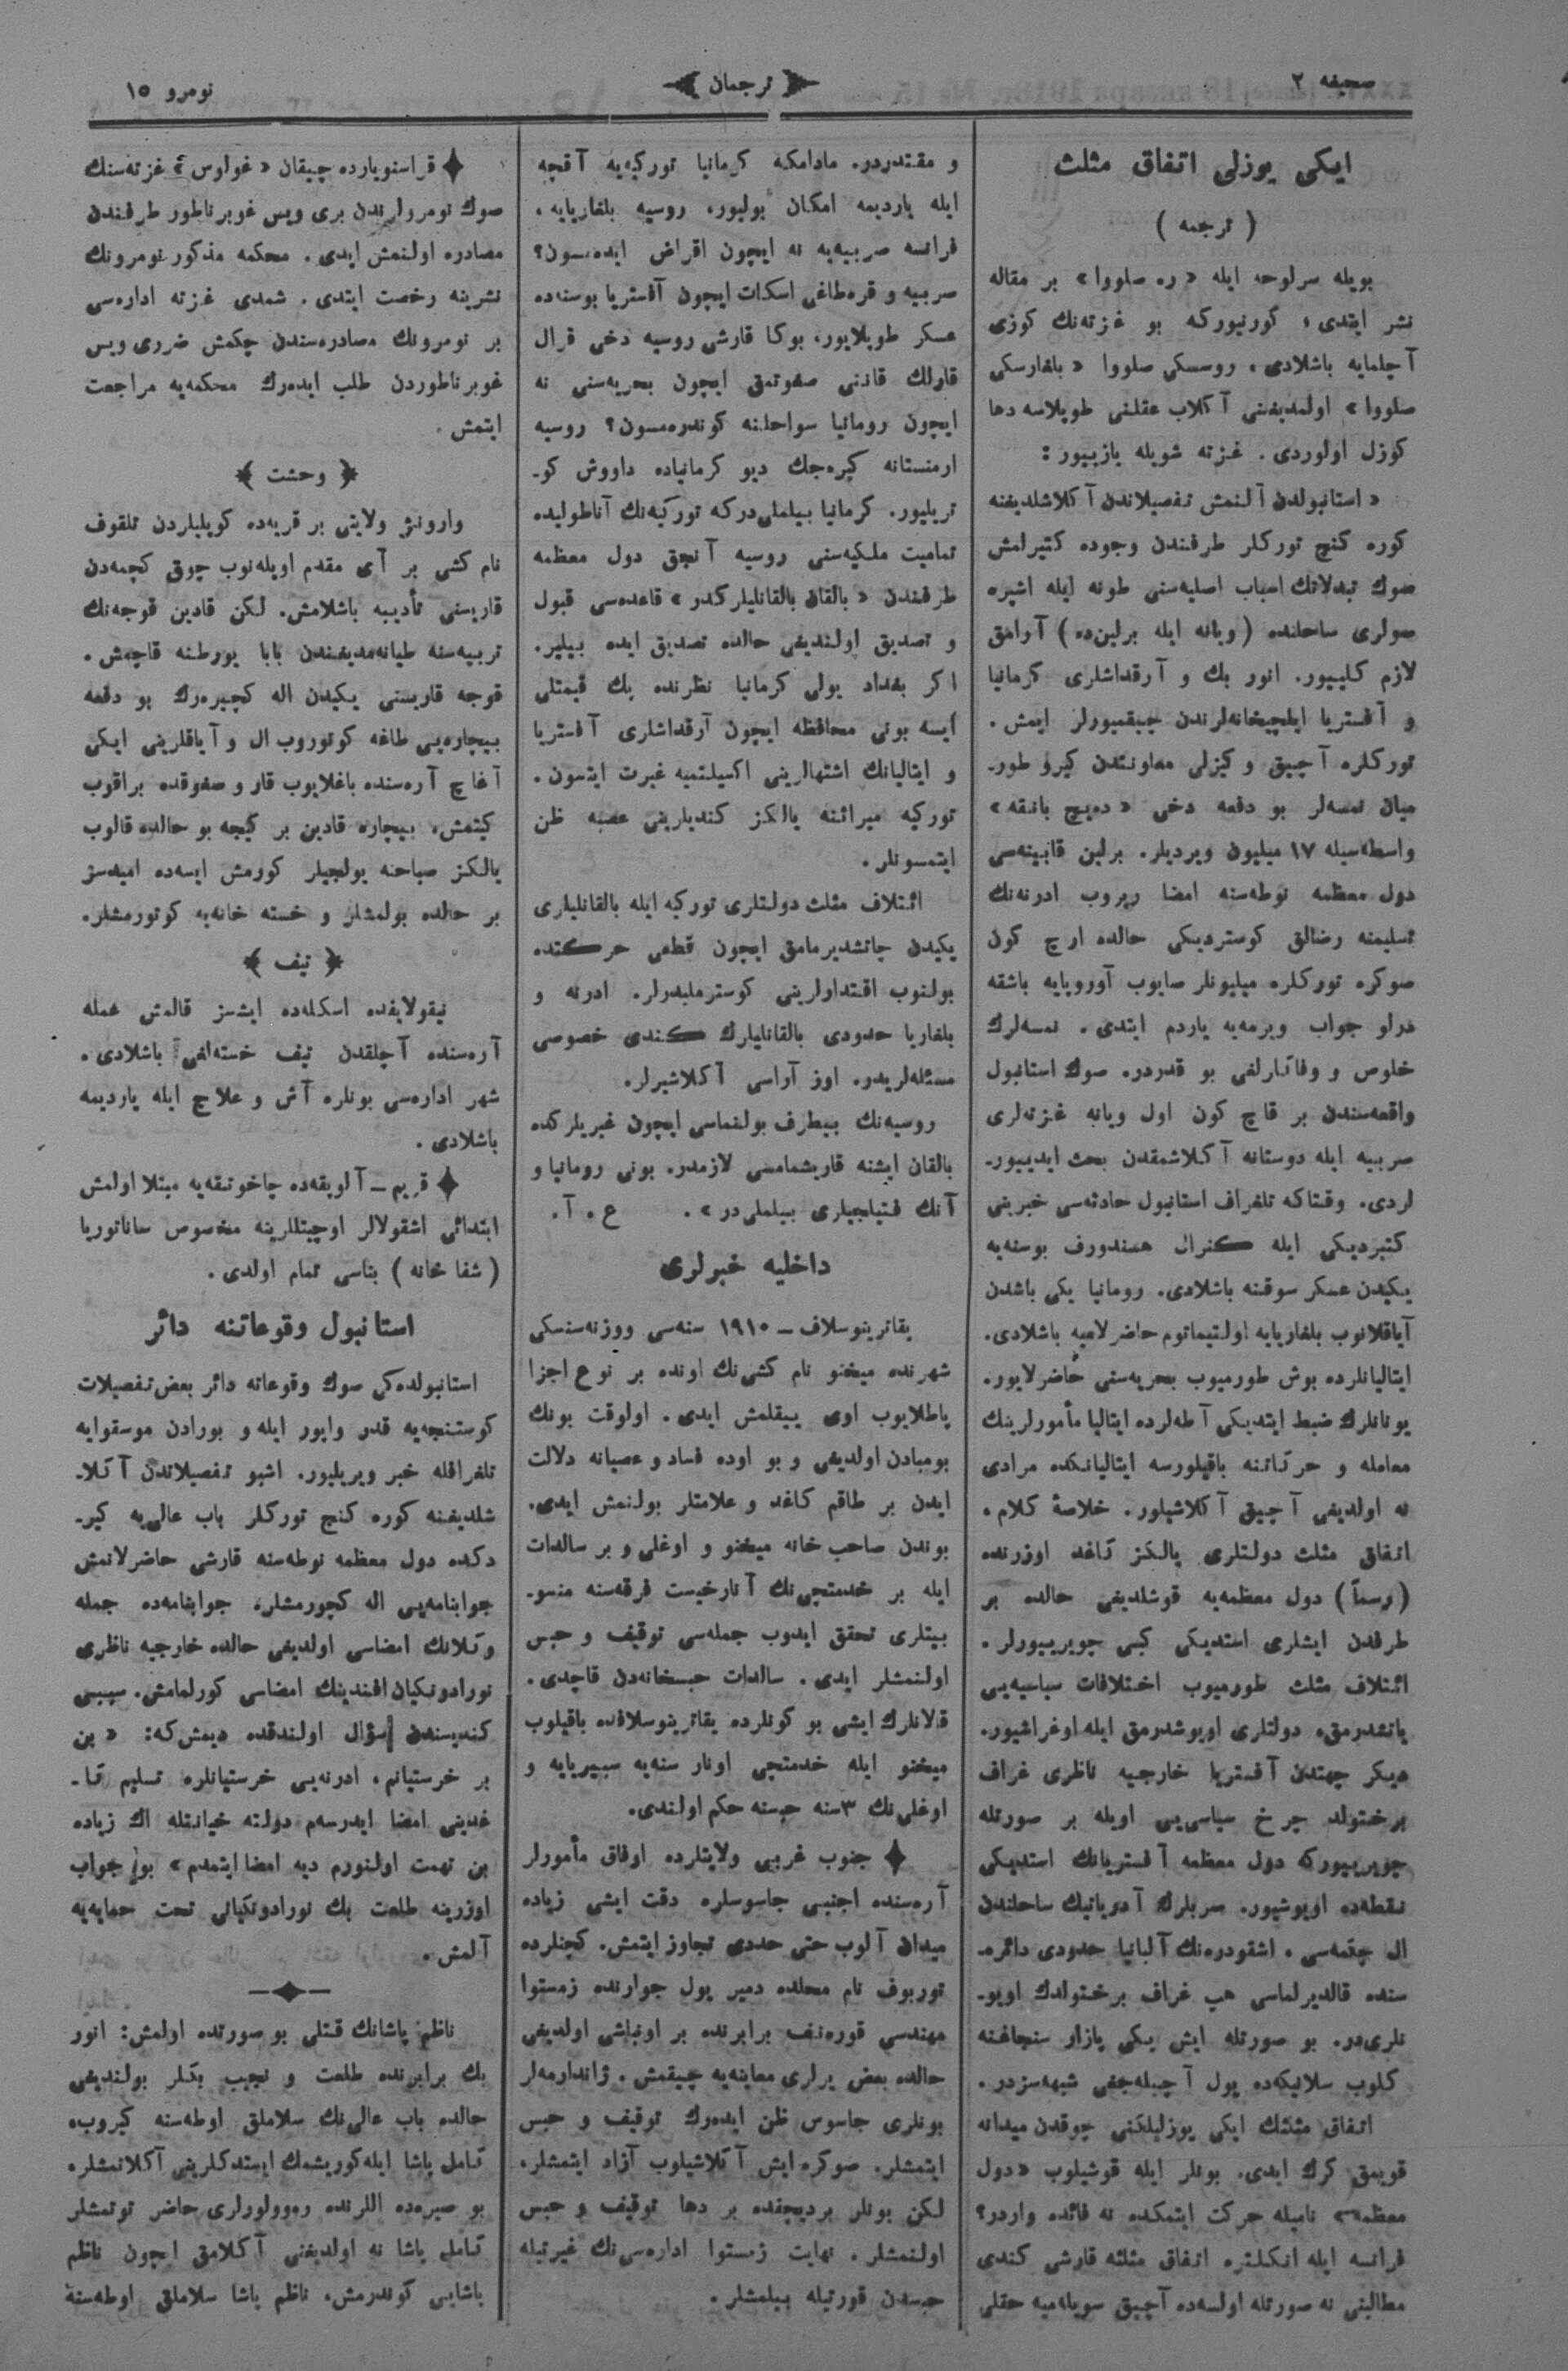 صحیفه ٢
ترجمان
نومرو ١٥
ایکی یوزلی اتفاق مثلث
( ترجمه )
بویله سرلوحه ایله « ره صلووا » بر مقاله
نشر ایتدی ، کورنیورکه بو غزته‌نك کوزی
آچلمایه باشلادی ، روسسکی صلووا « بلغارسکی
صلووا » اولمدیغنی آکلاب عقلنی طوپلاسه دها
کوزل اولوردی . غزته شویله یازییور :
« استانبولدن آلنمش تفصیلاتدن آکلاشلدیغنه
کوره کنج تورکلر طرفندن وجوده کتیرلمش
صوك تبدلاتك اسباب اصلیه‌سنی طونه ایله اشپره
صولری ساحلنده (ویانه ایله برلین‌ده) آرامق
لازم کلییور. انور بك و آرقداشلری کرمانیا
و آفستریا ایلچیخانه‌لرندن چیقمیورلر ایمش .
تورکلره آچیق و کیزلی معاونتدن کیرو طور-
میان نمسه‌لر بو دفعه دخی « ده‌یچ بانقه »
واسطه‌سیله ١٧ میلیون ویردیلر. برلین قابینه‌سی
دول معظمه نوطه‌سنه امضا ویروب ادرنه‌نك
تسلیمنه رضالق کوستردیکی حالده اوچ کون
صوکره تورکلره میلیونلر صایوب آوروپایه باشقه
درلو جواب ویرمه‌یه یاردم ایتدی . نمسه‌لرك
خلوص و وفاکارلغی بو قدردر. صوك استانبول
واقعه‌سندن بر قاچ کون اول ویانه غزته‌لری
صربیه ایله دوستانه آکلاشمقدن بحث ایدییور-
لردی. وقتاکه تلغراف استانبول حادثه‌سی خبرینی
کتیردیکی ایله کنرال همندورف بوسنه‌یه
یکیدن عسکر سوقنه باشلادی. رومانیا یکی باشدن
آیاقلانوب بلغاریایه اولتیماتوم حاضرلامیه باشلادی.
ایتالیانلرده بوش طورمیوب بحریه‌سنی حاضرلایور.
یونانلرك ضبط ایتدیکی آطه‌لرده ایتالیا مأمورلرینك
معامله و حرکاتنه باقیلورسه ایتالیانکده مرادی
نه اولدیغی آچیق آکلاشیلور. خلاصهٔ کلام ،
اتفاق مثلث دولتلری یالکز کاغد اوزرنده
(رسماً) دول معظمه‌یه قوشلدیغی حالده بر
طرفدن ایشلری استدیکی کبی چویرییورلر .
ائتلاف مثلث طورمیوب اختلافات سیاسیه‌یی
یاتشدرمق، دولتلری اویوشدرمق ایله اوغراشیور.
دیکر جهتدن آفستریا خارجیه ناظری غراف
برختولد چرخ سیاسی‌یی اویله بر صورتله
چویرییورکه دول معظمه آفستریانك استدیکی
نقطه‌ده اویوشیور. سربلرك آدریاتیك ساحلندن
ال چکمه‌سی ، اشقودره‌نك آلبانیا حدودی دائره-
سنده قالدیرلماسی هپ غراف برختولدك اویو-
نلری‌در. بو صورتله ایش یکی پازار سنجاغنه
کلوب سلانیکه‌ده یول آچیله‌جغی شبهه‌سزدر .
اتفاق مثلثك ایکی یوزلیلکنی چوقدن میدانه
قویمق کرك ایدی. بونلر ایله قوشیلوب «دول
معظمه» نامیله حرکت ایتمکده نه فائده واردر؟
فرانسه ایله انکلتره اتفاق مثلثه قارشی کندی
مطالبنی نه صورتله اولسه‌ده آچیق سویله‌میه حقلی
و مقتدردر. مادامکه کرمانیا تورکیه‌یه آقچه
ایله یاردیمه امکان بولیور، روسیه بلغاریایه ،
فرانسه صربیه‌یه نه ایچون اقراض ایده‌مسون؟
صربیه و قره‌طاغی اسکات ایچون آفستریا بوسنه‌ده
عسکر طوپلایور، بوکا قارشی روسیه دخی قرال
قارلك قاننی صغوتمق ایچون بحریه‌سنی نه
ایچون رومانیا سواحلنه کوندره‌مسون؟ روسیه
ارمنستانه کیره‌جك دیو کرمانیاده داووش کو-
تریلیور. کرمانیا بیلملی‌درکه تورکیه‌نك آناطولیده
تمامیت ملکیه‌سنی روسیه آنجق دول معظمه
طرفندن « بالقان بالقانلیلرکدر » قاعده‌سی قبول
و تصدیق اولندیغی حالده تصدیق ایده بیلیر.
اکر بغداد یولی کرمانیا نظرنده پك قیمتلی
ایسه بونی محافظه ایچون آرقداشلری آفستریا
و ایتالیانك اشتهالرینی اکسیلتمیه غیرت ایتسون .
تورکیه میراثنه یالکز کندیلرینی عصبه ظن
ایتمسونلر .
ائتلاف مثلث دولتلری تورکیه ایله بالقانلیلری
یکیدن چاتشدیرمامق ایچون قطعی حرکتده
بولنوب اقتدارلرینی کوسترملیدرلر. ادرنه و
بلغاریا حدودی بالقانلیلرك کندی خصوصی
مسئله‌لریدر. اوز آراسی آکلاشیرلر.
روسیه‌نك بیطرف بولنماسی ایچون غیریلرکده
بالقان ایشنه قاریشمامسی لازمدر. بونی رومانیا و
آنك فتیلجیلری بیلملی‌در » . ع . آ .
داخلیه خبرلری
یقاترینوسلاف ــ ١٩١٠ سنه‌سی ووزنه‌سنسکی
شهرنده میخنو نام کشی‌نك اونده بر نوع اجزا
پاطلایوب اوی ییقلمش ایدی . اولوقت بونك
بومبادن اولدیغی و بو اوده فساد و عصیانه دلالت
ایدن بر طاقم کاغد و علامتلر بولنمش ایدی.
بوندن صاحب خانه میخنو و اوغلی و بر سالدات
ایله بر خدمتجی‌نك آنارخیست فرقه‌سنه منسو-
بیتلری تحقق ایدوب جمله‌سی توقیف و حبس
اولنمشلر ایدی . سالدات حبسخانه‌دن قاچدی .
قالانلرك ایشی بو کونلرده یقاترینوسلافده باقیلوب
میخنو ایله خدمتجی اونار سنه‌یه سیبیریایه و
اوغلی‌نك ٣سنه حبسنه حکم اولندی.
جنوب غربی ولایتلرده اوفاق مأمورلر
آره‌سنده اجنبی جاسوسلره دقت ایشی زیاده
میدان آلوب حتی حددی تجاوز ایتمش. کچنلرده
توربوف نام محلده دمیر یول جوارنده زمستوا
مهندسی قوره‌نف برابرنده بر اونباشی اولدیغی
حالده بعض یرلری معاینه‌یه چیقمش . ژاندارمه‌لر
بونلری جاسوس ظن ایده‌رك توقیف و حبس
ایتمشلر. صوکره ایش آکلاشیلوب آزاد ایتمشلر،
لکن بونلر بردیچفده بر دها توقیف و حبس
اولنمشلر . نهایت زمستوا اداره‌سی‌نك غیرتیله
حبسدن قورتیله بیلمشلر .
قراسنویارده چیقان « غولوس » غزته‌سنك
صوك نومرولرندن بری ویس غوبرناطور طرفندن
مصادره اولنمش ایدی . محکمه مذکور نومرونك
نشرینه رخصت ایتدی . شمدی غزته اداره‌سی
بر نومرونك مصادره‌سندن چکمش ضرری ویس
غوبرناطوردن طلب ایده‌رك محکمه‌یه مراجعت
ایتمش .
﴿ وحشت ﴾
وارونژ ولایتی بر قریه‌ده کویلیلردن تلقوف
نام کشی بر آی مقدم اویله‌نوب چوق کچمه‌دن
قاریسنی تأدیبه باشلامش. لکن قادین قوجه‌نك
تربیه‌سنه طیانه‌مدیغندن بابا یورطنه قاچمش .
قوجه قاریسنی یکیدن اله کچیره‌رك بو دفعه
بیچاره‌یی طاغه کوتوروب ال و آیاقلرینی ایکی
آغاچ آره‌سنده باغلایوب قار و صغوقده براقوب
کیتمش، بیچاره قادین بر کیجه بو حالده قالوب
یالکز صباحنه یولجیلر کورمش ایسه‌ده امیدسز
بر حالده بولمشلر و خسته خانه‌یه کوتورمشلر.
﴿ تیف ﴾
نیقولایفده اسکله‌ده ایشسز قالمش عمله
آره‌سنده آچلقدن تیف خسته‌لغی باشلادی .
شهر اداره‌سی بونلره آش و علاج ایله یاردیمه
باشلادی .
قریم ــ آلوپقه‌ده چاخوتقه‌یه مبتلا اولمش
ابتدائی اشقولالر اوچیتللرینه مخصوص ساناتوریا
( شفا خانه ) بناسی تمام اولدی .
استانبول وقوعاتنه دائر
استانبولده‌کی صوك وقوعاته دائر بعض تفصیلات
کوستنجه‌یه قدر واپور ایله و بورادن موسقوایه
تلغرافله خبر ویریلیور. اشبو تفصیلاتدن آکلا-
شلدیغنه کوره کنج تورکلر باب عالی‌یه کیر-
دکده دول معظمه نوطه‌سنه قارشی حاضرلانمش
جوابنامه‌یی اله کچورمشلر، جوابنامه‌ده جمله
وکلانك امضاسی اولدیغی حالده خارجیه ناظری
نورادونکیان افندینك امضاسی کورلمامش. سببی
کندیسندن سؤال اولندقده دیمش‌که: « بن
بر خرستیانم ، ادرنه‌یی خرستیانلره تسلیم کا-
غدینی امضا ایدرسه‌م دولته خیانتله اك زیاده
بن تهمت اولنورم دیه امضا ایتمدم » بو جواب
اوزرینه طلعت بك نورادونکیانی تحت حمایه‌یه
آلمش .
ناظم پاشانك قتلی بو صورتده اولمش: انور
بك برابرنده طلعت و نجیب بکلر بولندیغی
حالده باب عالی‌نك سلاملق اوطه‌سنه کیروب،
کامل پاشا ایله کوریشمك ایستدکلرینی آکلاتمشلر،
بو صیره‌ده اللرنده ره‌وولورلری حاضر توتمشلر
کامل پاشا نه اولدیغنی آکلامق ایچون ناظم
پاشایی کوندرمش، ناظم پاشا سلاملق اوطه‌سنه